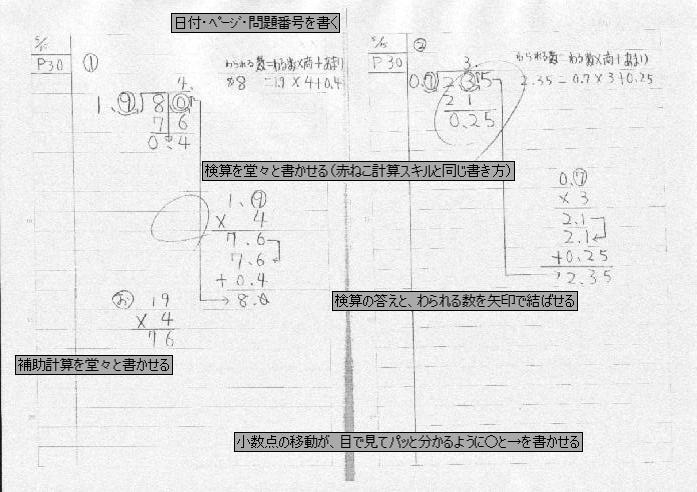 日付・ページ・問題番号を書く
5/15
P30
①
わられる数=わる数×商+あまり
8 =1.9×4+0.4
4.
1.9 8 0
7 6
0.4
検算を堂々と書かせる(赤ねこ計算スキルと同じ書き方)
1.9
× 4
7.6
7.6
+0.4
8.0
お 19
×4
76
補助計算を堂々と書かせる
P30
②
わられる数=わる数×商+あまり
2.35=0.7×3+0.25
3.
0.7 2 3.5
2 1
0.25
0.7
×3
2.1
2.1
+0.25
2.35
検算の答えと、わられる数を矢印で結ばせる
小数点の移動が、目で見てパッと分かるように〇と→を書かせる